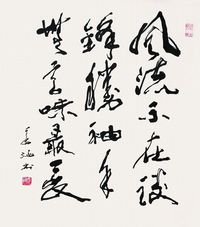 风流不在谈
锋胜袖手
无言味最长